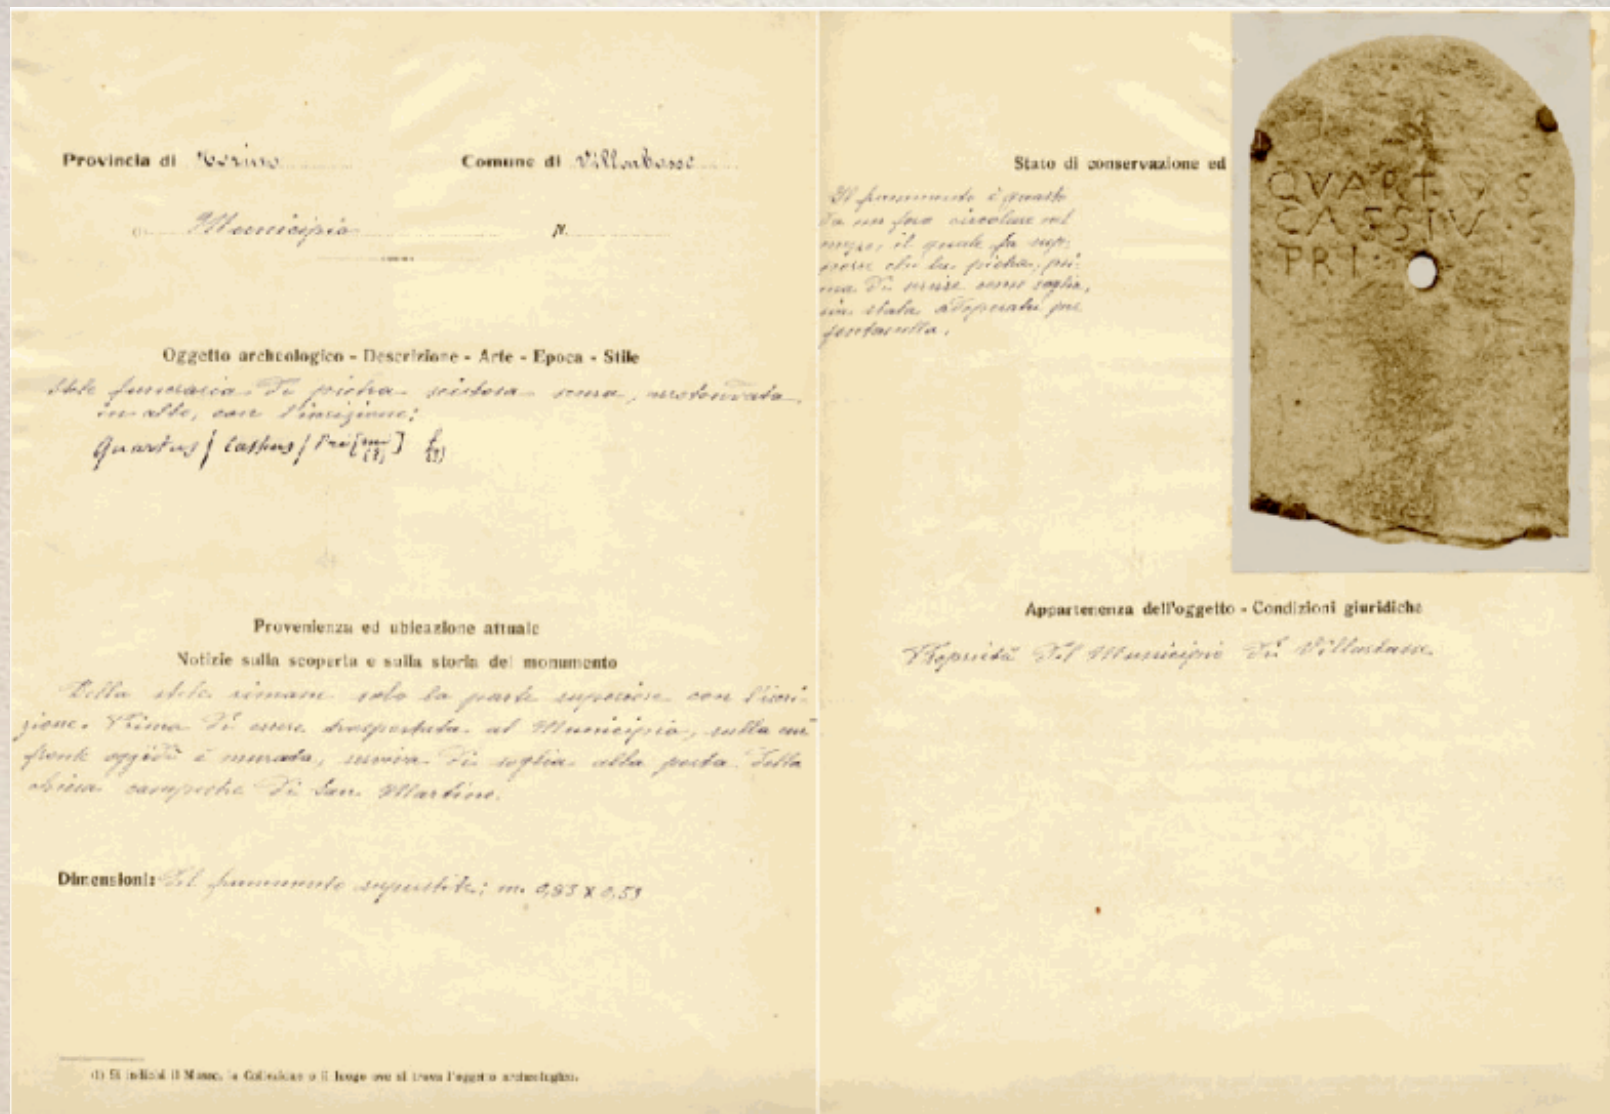 Provincia di Torino
Comune di Villarbasse
(1) Municipio N.
Oggetto archeologico - Descrizione - Arte - Epoca - Stile
Stele funeraria di pietra scistosa, arrotondata
in alto, con l'iscrizione:
Quartus / Cassius / Pri[mi (?)] f (?)
Provenienza ed ubicazione attuale
Notizie sulla scoperta e sulla storia del monumento
Della stele rimane solo la parte superiore con l'iscri-
zione. Prima di essere trasportata al Municipio, sulla cui
fronte oggidì è murata, serviva di soglia alla porta della
chiesa campestre di San Martino.
Dimensioni: Del frammento superstite: m. 0,83 x 0,53
(1) Si indichi il Museo, la Collezione o il luogo ove si trova l'oggetto archeologico.
Stato di conservazione ed
Il frammento è guasto
da un foro circolare nel
mezzo, il quale fa sup-
porre che la pietra, pri-
ma di servire come soglia,
sia stata adoperata per
fontanella.
QVARTVS
CASSIVS
PRI
Appartenenza dell'oggetto - Condizioni giuridiche
Proprietà del Municipio di Villarbasse